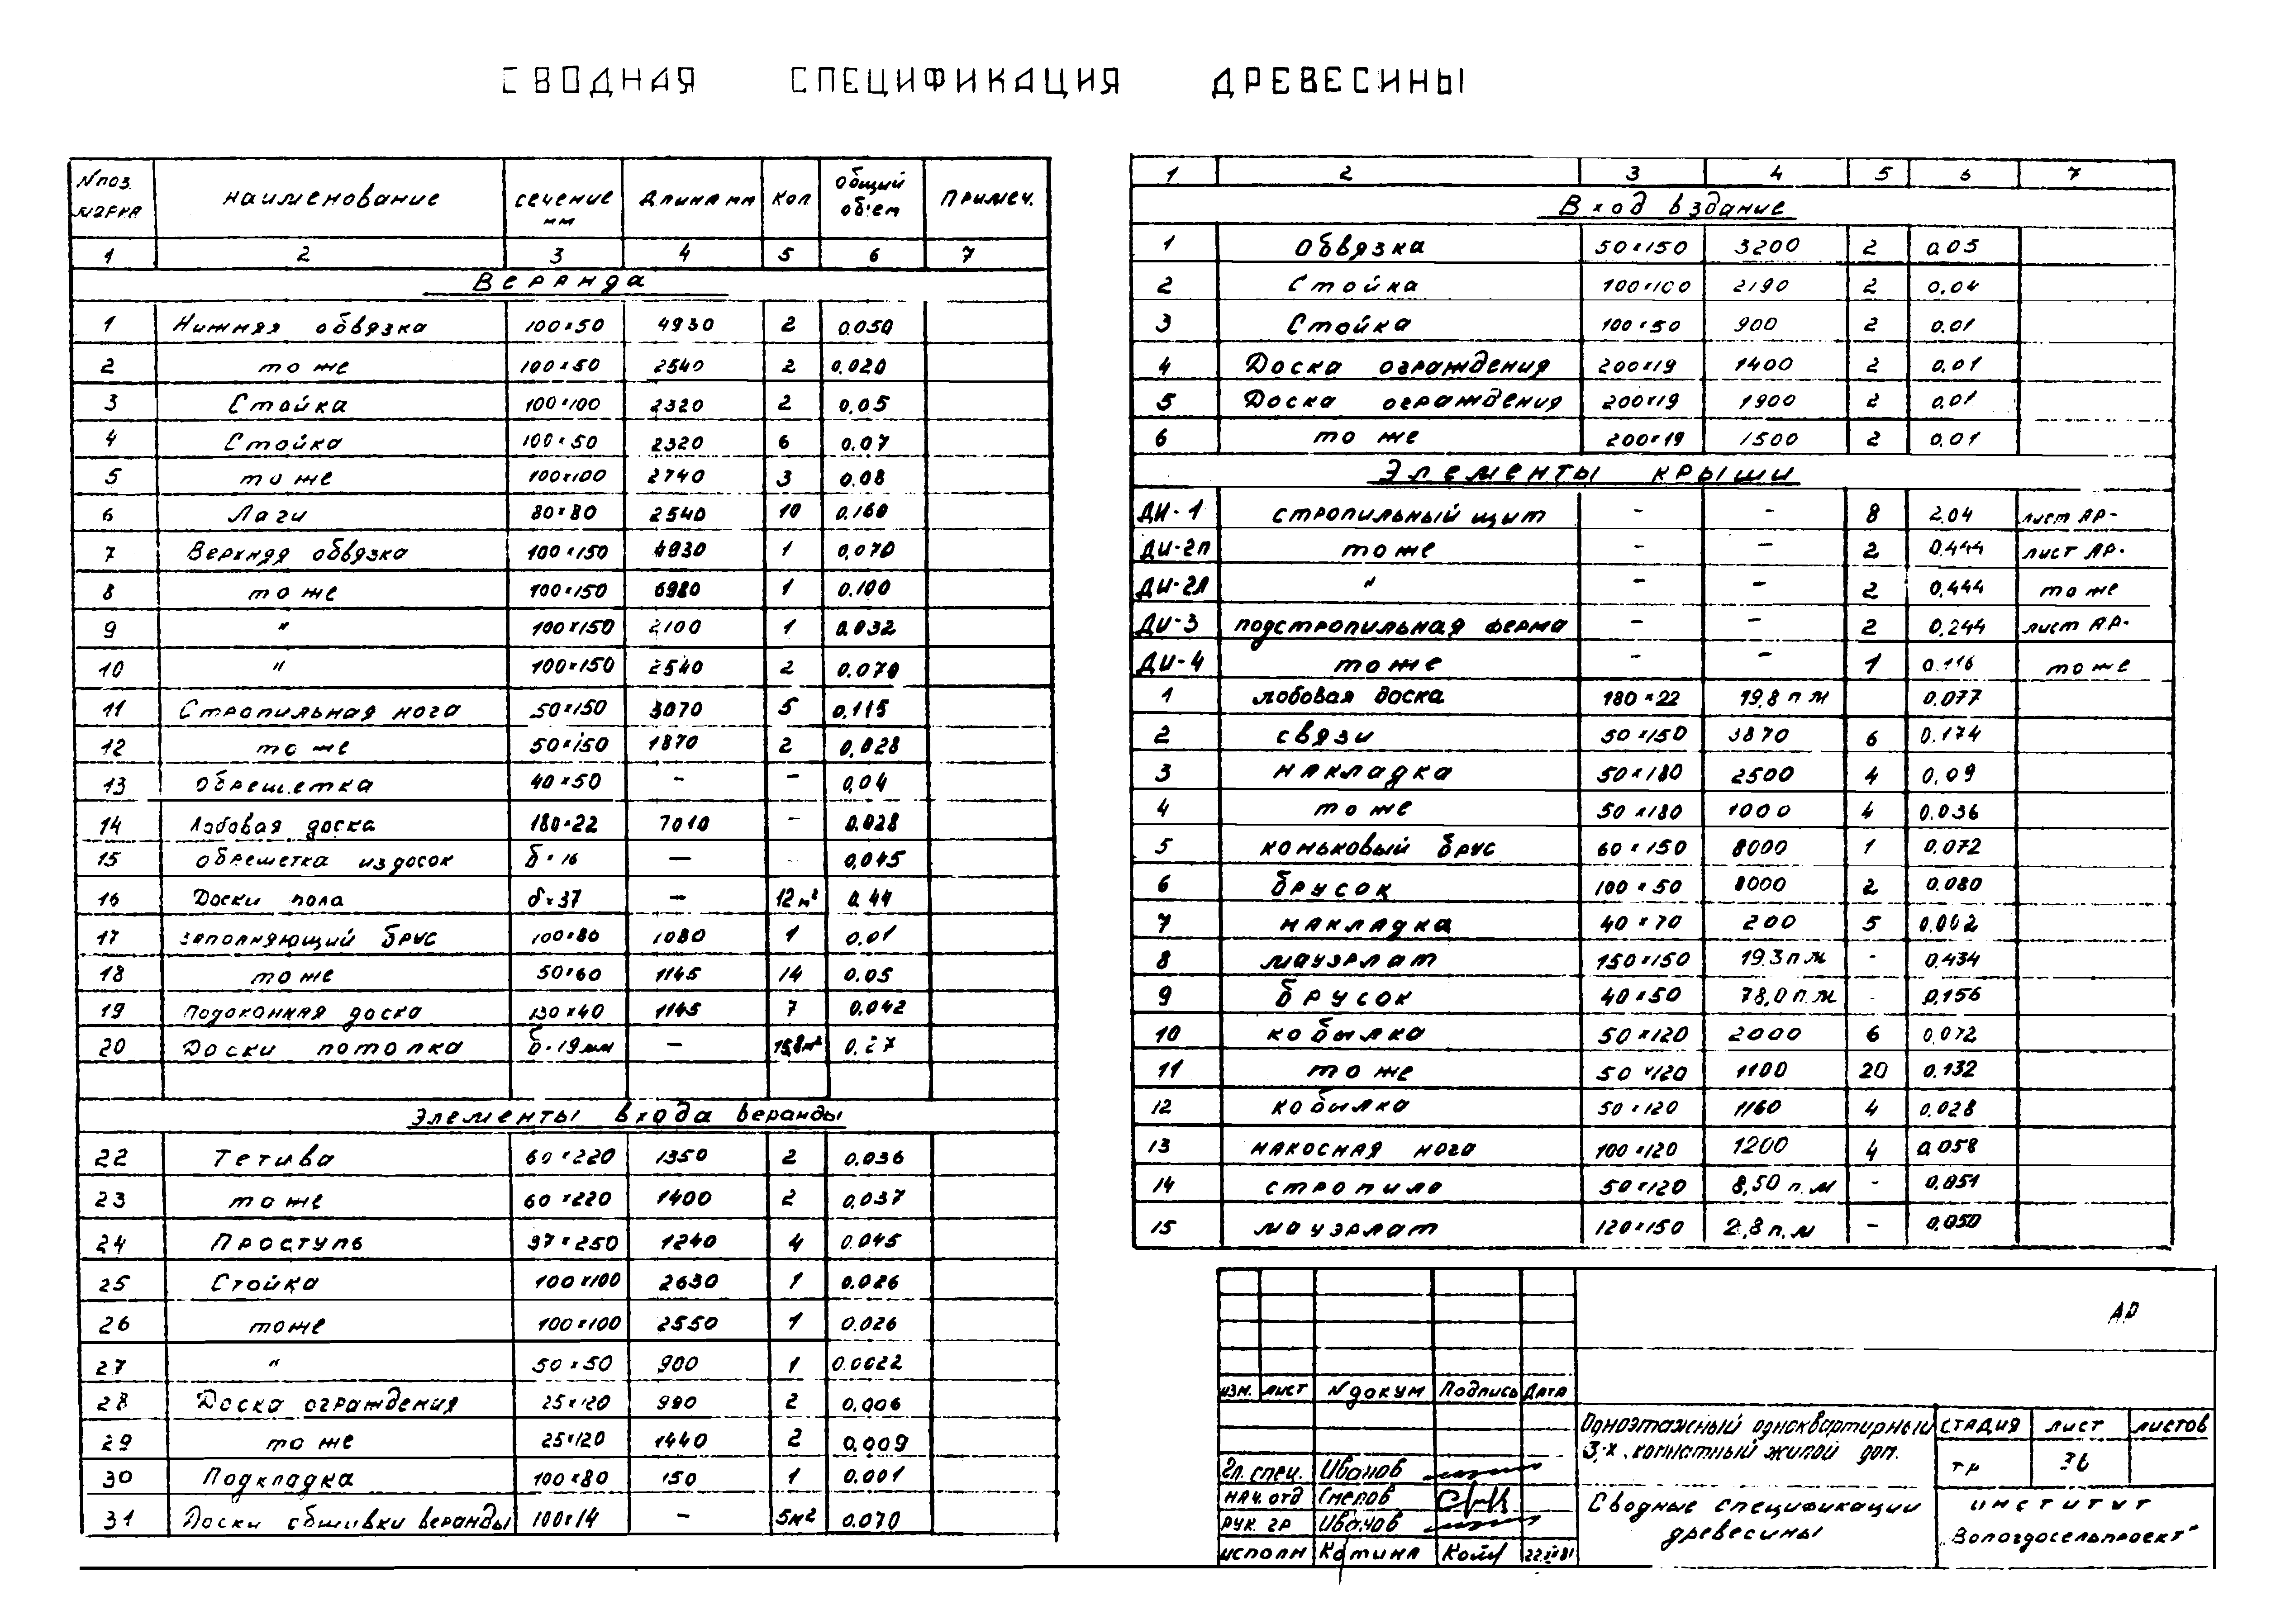 СВОДНАЯ СПЕЦИФИКАЦИЯ ДРЕВЕСИНЫ
N поз. марка наименование сечение мм Длина мм Кол общий об'ем Примеч.
1 2 3 4 5 6 7
Веранда
1 Нижняя обвязка 100×50 4930 2 0.050
2 то же 100×50 2540 2 0.020
3 Стойка 100×100 2320 2 0.05
4 Стойка 100×50 2320 6 0.07
5 то же 100×100 2740 3 0.08
6 Лаги 80×80 2540 10 0.160
7 Верхняя обвязка 100×150 4930 1 0.070
8 то же 100×150 6980 1 0.100
9 " 100×150 2100 1 0.032
10 " 100×150 2540 2 0.070
11 Стропильная нога 50×150 3070 5 0.115
12 то же 50×150 1870 2 0.028
13 обрешетка 40×50 - - 0,04
14 Лобовая доска 180×22 7010 - 0.028
15 обрешетка из досок δ=16 — - 0,045
16 Доски пола δ=37 — 12м² 0.44
17 заполняющий брус 100×80 1080 1 0.01
18 то же 50×60 1145 14 0.05
19 подоконная доска 130×40 1145 7 0.042
20 Доски потолка δ=19мм — 15,8м² 0.27
Элементы входа веранды
22 Тетива 60×220 1350 2 0.036
23 то же 60×220 1400 2 0,037
24 Проступь 37×250 1240 4 0.045
25 Стойка 100×100 2630 1 0.026
26 то же 100×100 2550 1 0.026
27 " 50×50 900 1 0.0022
28 Доска ограждения 25×120 990 2 0.006
29 то же 25×120 1440 2 0.009
30 Подкладка 100×80 150 1 0.001
31 Доски обшивки веранды 100×14 — 5м² 0.070
1 2 3 4 5 6 7
Вход в здание
1 обвязка 50×150 3200 2 0.05
2 Стойка 100×100 2190 2 0.04
3 Стойка 100×50 900 2 0.01
4 Доска ограждения 200×19 1400 2 0.01
5 Доска ограждения 200×19 1900 2 0.01
6 то же 200×19 1500 2 0.01
Элементы крыши
ДИ-1 стропильный щит - - 8 2.04 лист АР-
ДИ-2п то же - - 2 0.444 лист АР-
ДИ-2л " - - 2 0.444 то же
ДИ-3 подстропильная ферма - - 2 0.244 лист АР-
ДИ-4 то же - - 1 0.116 то же
1 лобовая доска 180×22 19,8 п м 0.077
2 связи 50×150 3870 6 0.174
3 накладка 50×180 2500 4 0.09
4 то же 50×180 1000 4 0.036
5 коньковый брус 60×150 8000 1 0.072
6 брусок 100×50 8000 2 0.080
7 накладка 40×70 200 5 0.002
8 мауэрлат 150×150 19.3 п м - 0.434
9 брусок 40×50 78,0 п.м - 0.156
10 кобылка 50×120 2000 6 0.072
11 то же 50×120 1100 20 0.132
12 кобылка 50×120 1160 4 0.028
13 накосная нога 100×120 1200 4 0.058
14 стропила 50×120 8,50 п.м - 0.051
15 мауэрлат 120×150 2,8 п.м - 0,050
АР
изм. лист N докум Подпись Дата
Гл. спец. Иванов
нач. отд Смелов
рук. гр Иванов
исполн Котина
Одноэтажный одноквартирный
3-х комнатный жилой дом.
Сводные спецификации
древесины
стадия лист листов
тр 36
институт
"Вологдосельпроект"